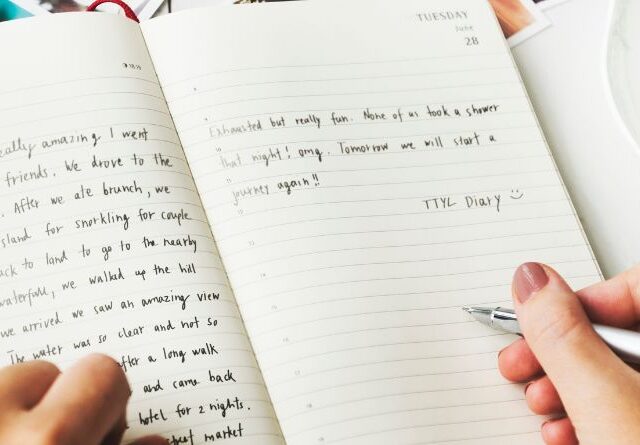 eally amazing I went
friends. We drove to the
. After we ate brunch, we
island for snorkling for couple
ack to land to go to the nearby
waterfall, we walked up the hill
we arrived we saw an amazing view
The water was so clear and not so
after a long walk
and came back
hotel for 2 nights.
market
TUESDAY
June
28
Exhausted but really fun. None of us took a shower
that night! omg. Tomorrow we will start a
journey again!!
TTYL Diary